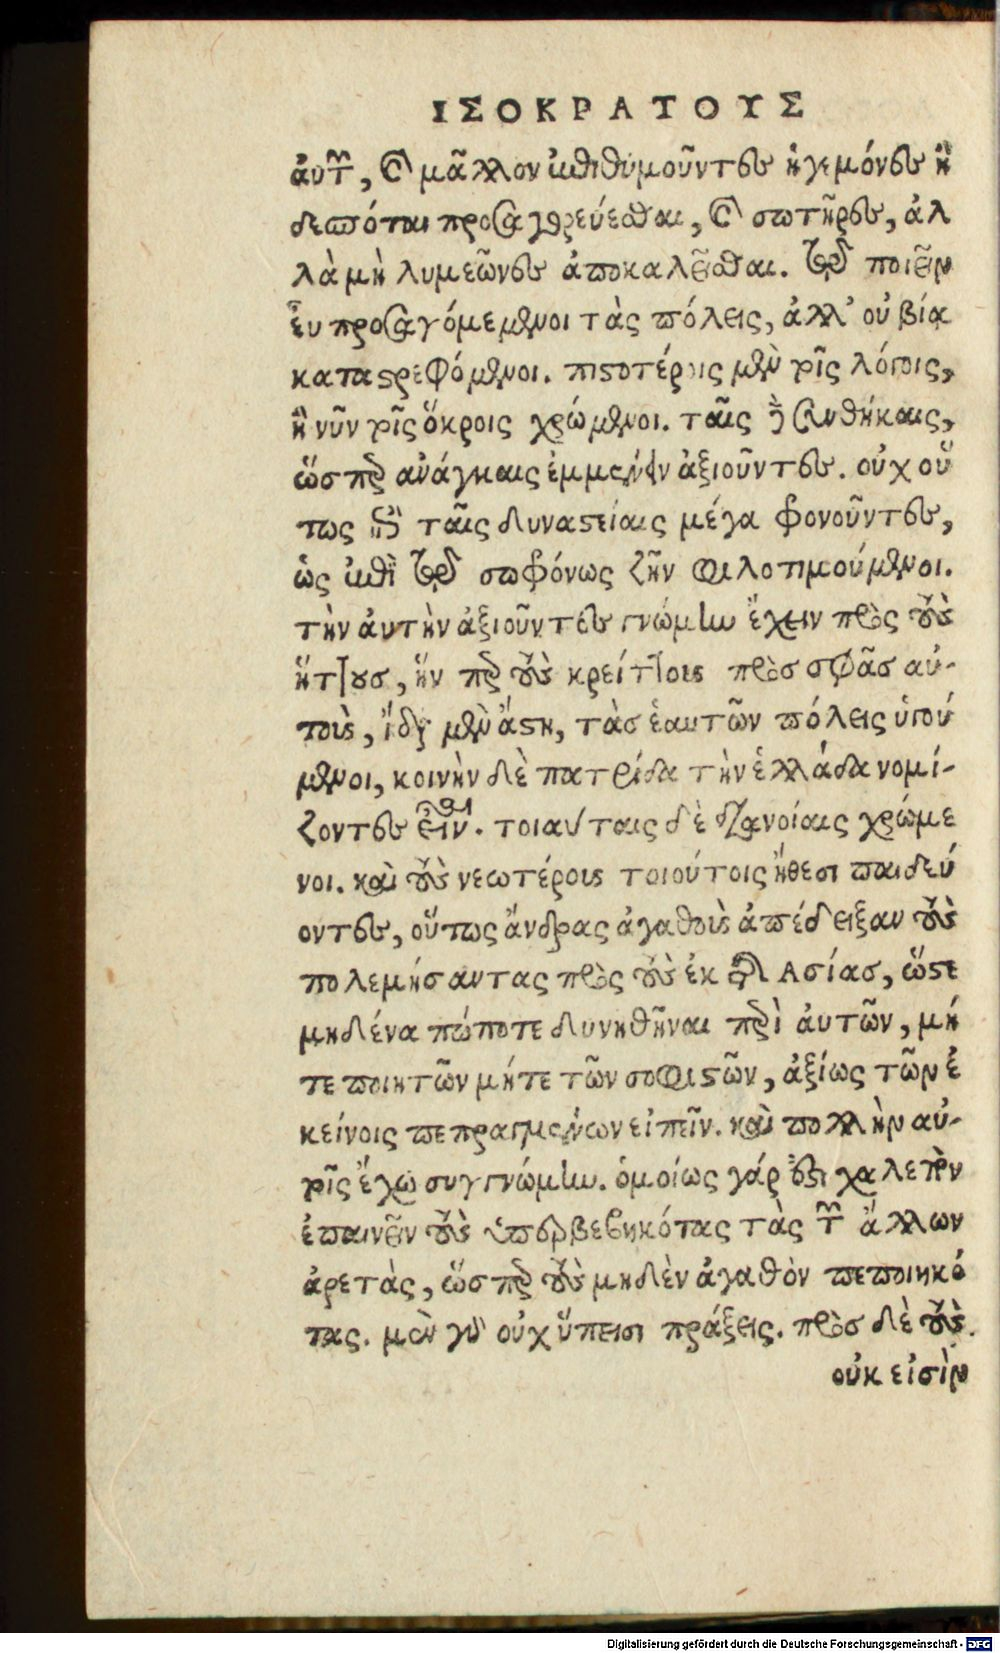 ΙΣΟΚΡΑΤΟΥΣ
ἀυτῶν, καὶ μᾶλλον ἐπιθυμοῦντες ἡγεμόνες ἢ
δεσπόται προσαγορεύεσθαι, καὶ σωτῆρες, ἀλ
λὰ μὴ λυμεῶνες ἀποκαλεῖσθαι. τῷ ποιεῖν
ἐυ προσαγόμενοι τὰς πόλεις, ἀλλ’ οὐ βίᾳ
καταστρεφόμενοι. πιστοτέροις μὲν τοῖς λόγοις,
ἢ νῦν τοῖς ὅκροις χρώμενοι. ταῖς δὲ συνθήκαις,
ὥσπερ ἀνάγκαις ἐμμένειν ἀξιοῦντες. οὐχ οὕ
τως ἐπὶ ταῖς δυναστείαις μέγα φρονοῦντες,
ὡς ἐπὶ τῷ σωφρόνως ζῆν φιλοτιμούμενοι.
τὴν ἀυτὴν ἀξιοῦντες γνώμην ἔχειν πρὸς τοὺς
ἥττους, ἥν περ τοὺς κρείττους πρὸσ σφᾶσ αὐ-
τοὺς, ἴδια μὲν ἄστη, τὰσ ἑαυτῶν πόλεις ἡγού
μενοι, κοινὴν δὲ πατρίδα τὴν ἑλλάδα νομί-
ζοντες εἶναι. τοιαύταις δὲ διανοίαις χρώμε
νοι. καὶ τοὺς νεωτέρους τοιούτοις ἤθεσι παιδεύ
οντες, οὕτως ἄνδρας ἀγαθοὺς ἀπέδειξαν τοὺς
πολεμήσαντας πρὸς τοὺς ἐκ τῆς Ασίας, ὥστε
μηδένα πώποτε δυνηθῆναι περὶ ἀυτῶν, μή
τε ποιητῶν μήτε τῶν σοφιστῶν, ἀξίως τῶν ἐ
κείνοις πεπραγμένων εἰπεῖν. καὶ πολλὴν αὐ-
τοῖς ἔχω συγγνώμην. ὁμοίως γάρ ἐστι χαλεπὸν
ἐπαινεῖν τοὺς ὑπερβεβηκότας τὰς τῶν ἄλλων
ἀρετὰς, ὥσπερ τοὺς μηδὲν ἀγαθὸν πεποιηκό
τας. μὲν γὰρ οὐχ ὕπεισι πράξεις. πρὸσ δὲ τοὺς.
οὐκ εἰσὶν
Digitalisierung gefördert durch die Deutsche Forschungsgemeinschaft - DFG